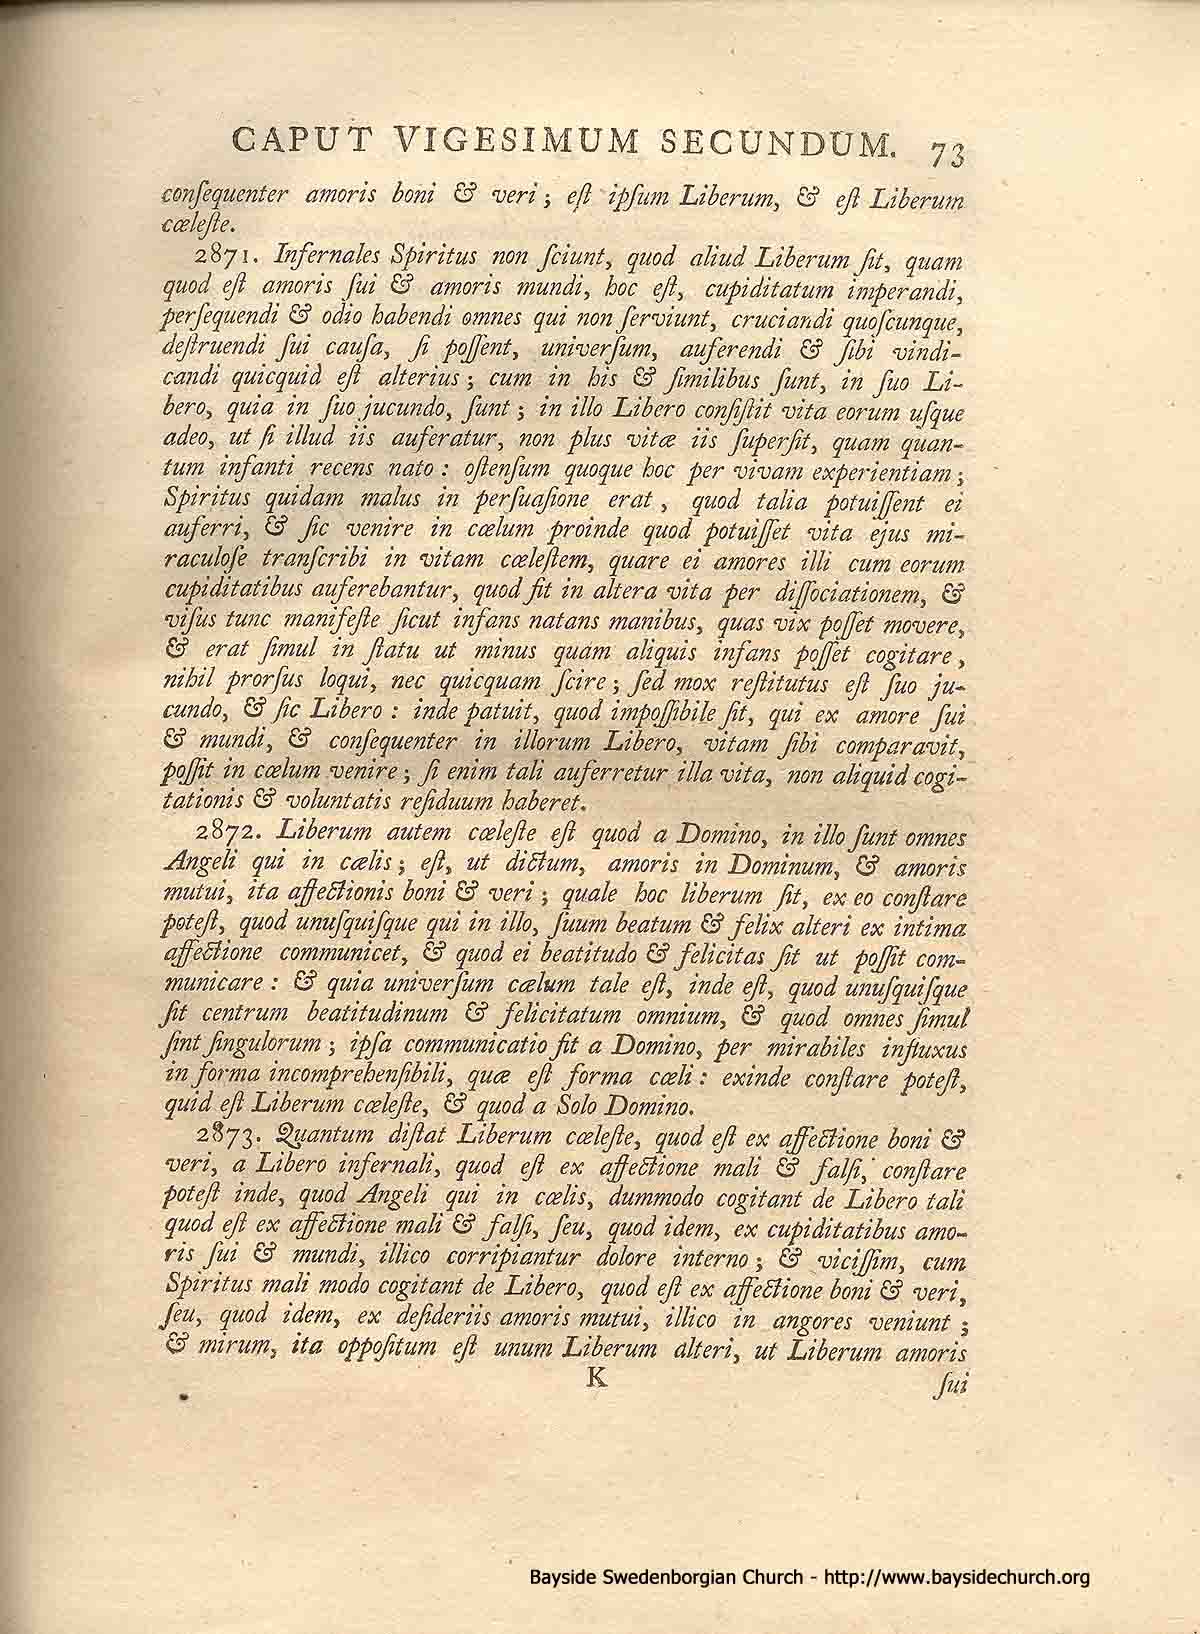 CAPUT VIGESIMUM SECUNDUM. 73
conſequenter amoris boni & veri; eſt ipſum Liberum, & eſt Liberum
cœleſte.
2871. Infernales Spiritus non ſciunt, quod aliud Liberum ſit, quam
quod eſt amoris ſui & amoris mundi, hoc eſt, cupiditatum imperandi,
perſequendi & odio habendi omnes qui non ſerviunt, cruciandi quoſcunque,
deſtruendi ſui cauſa, ſi poſſent, univerſum, auferendi & ſibi vindi-
candi quicquid eſt alterius; cum in his & ſimilibus ſunt, in ſuo Li-
bero, quia in ſuo jucundo, ſunt; in illo Libero conſiſtit vita eorum uſque
adeo, ut ſi illud iis auferatur, non plus vitæ iis ſuperſit, quam quan-
tum infanti recens nato: oſtenſum quoque hoc per vivam experientiam;
Spiritus quidam malus in perſuaſione erat, quod talia potuiſſent ei
auferri, & ſic venire in cœlum proinde quod potuiſſet vita ejus mi-
raculoſe tranſcribi in vitam cœleſtem, quare ei amores illi cum eorum
cupiditatibus auferebantur, quod fit in altera vita per diſſociationem, &
viſus tunc manifeſte ſicut infans natans manibus, quas vix poſſet movere,
& erat ſimul in ſtatu ut minus quam aliquis infans poſſet cogitare,
nihil prorſus loqui, nec quicquam ſcire; ſed mox reſtitutus eſt ſuo ju-
cundo, & ſic Libero: inde patuit, quod impoſſibile ſit, qui ex amore ſui
& mundi, & conſequenter in illorum Libero, vitam ſibi comparavit,
poſſit in cœlum venire; ſi enim tali auferretur illa vita, non aliquid cogi-
tationis & voluntatis reſiduum haberet.
2872. Liberum autem cœleſte eſt quod a Domino, in illo ſunt omnes
Angeli qui in cœlis; eſt, ut dictum, amoris in Dominum, & amoris
mutui, ita affectionis boni & veri; quale hoc liberum ſit, ex eo conſtare
poteſt, quod unuſquiſque qui in illo, ſuum beatum & felix alteri ex intima
affectione communicet, & quod ei beatitudo & felicitas ſit ut poſſit com-
municare: & quia univerſum cœlum tale eſt, inde eſt, quod unuſquiſque
ſit centrum beatitudinum & felicitatum omnium, & quod omnes ſimul
ſint ſingulorum; ipſa communicatio fit a Domino, per mirabiles influxus
in forma incomprehenſibili, quæ eſt forma cœli: exinde conſtare poteſt,
quid eſt Liberum cœleſte, & quod a Solo Domino.
2873. Quantum diſtat Liberum cœleſte, quod eſt ex affectione boni &
veri, a Libero infernali, quod eſt ex affectione mali & falſi, conſtare
poteſt inde, quod Angeli qui in cœlis, dummodo cogitant de Libero tali
quod eſt ex affectione mali & falſi, ſeu, quod idem, ex cupiditatibus amo-
ris ſui & mundi, illico corripiantur dolore interno; & viciſſim, cum
Spiritus mali modo cogitant de Libero, quod eſt ex affectione boni & veri,
ſeu, quod idem, ex deſideriis amoris mutui, illico in angores veniunt;
& mirum, ita oppoſitum eſt unum Liberum alteri, ut Liberum amoris
K ſui
Bayside Swedenborgian Church - http://www.baysidechurch.org